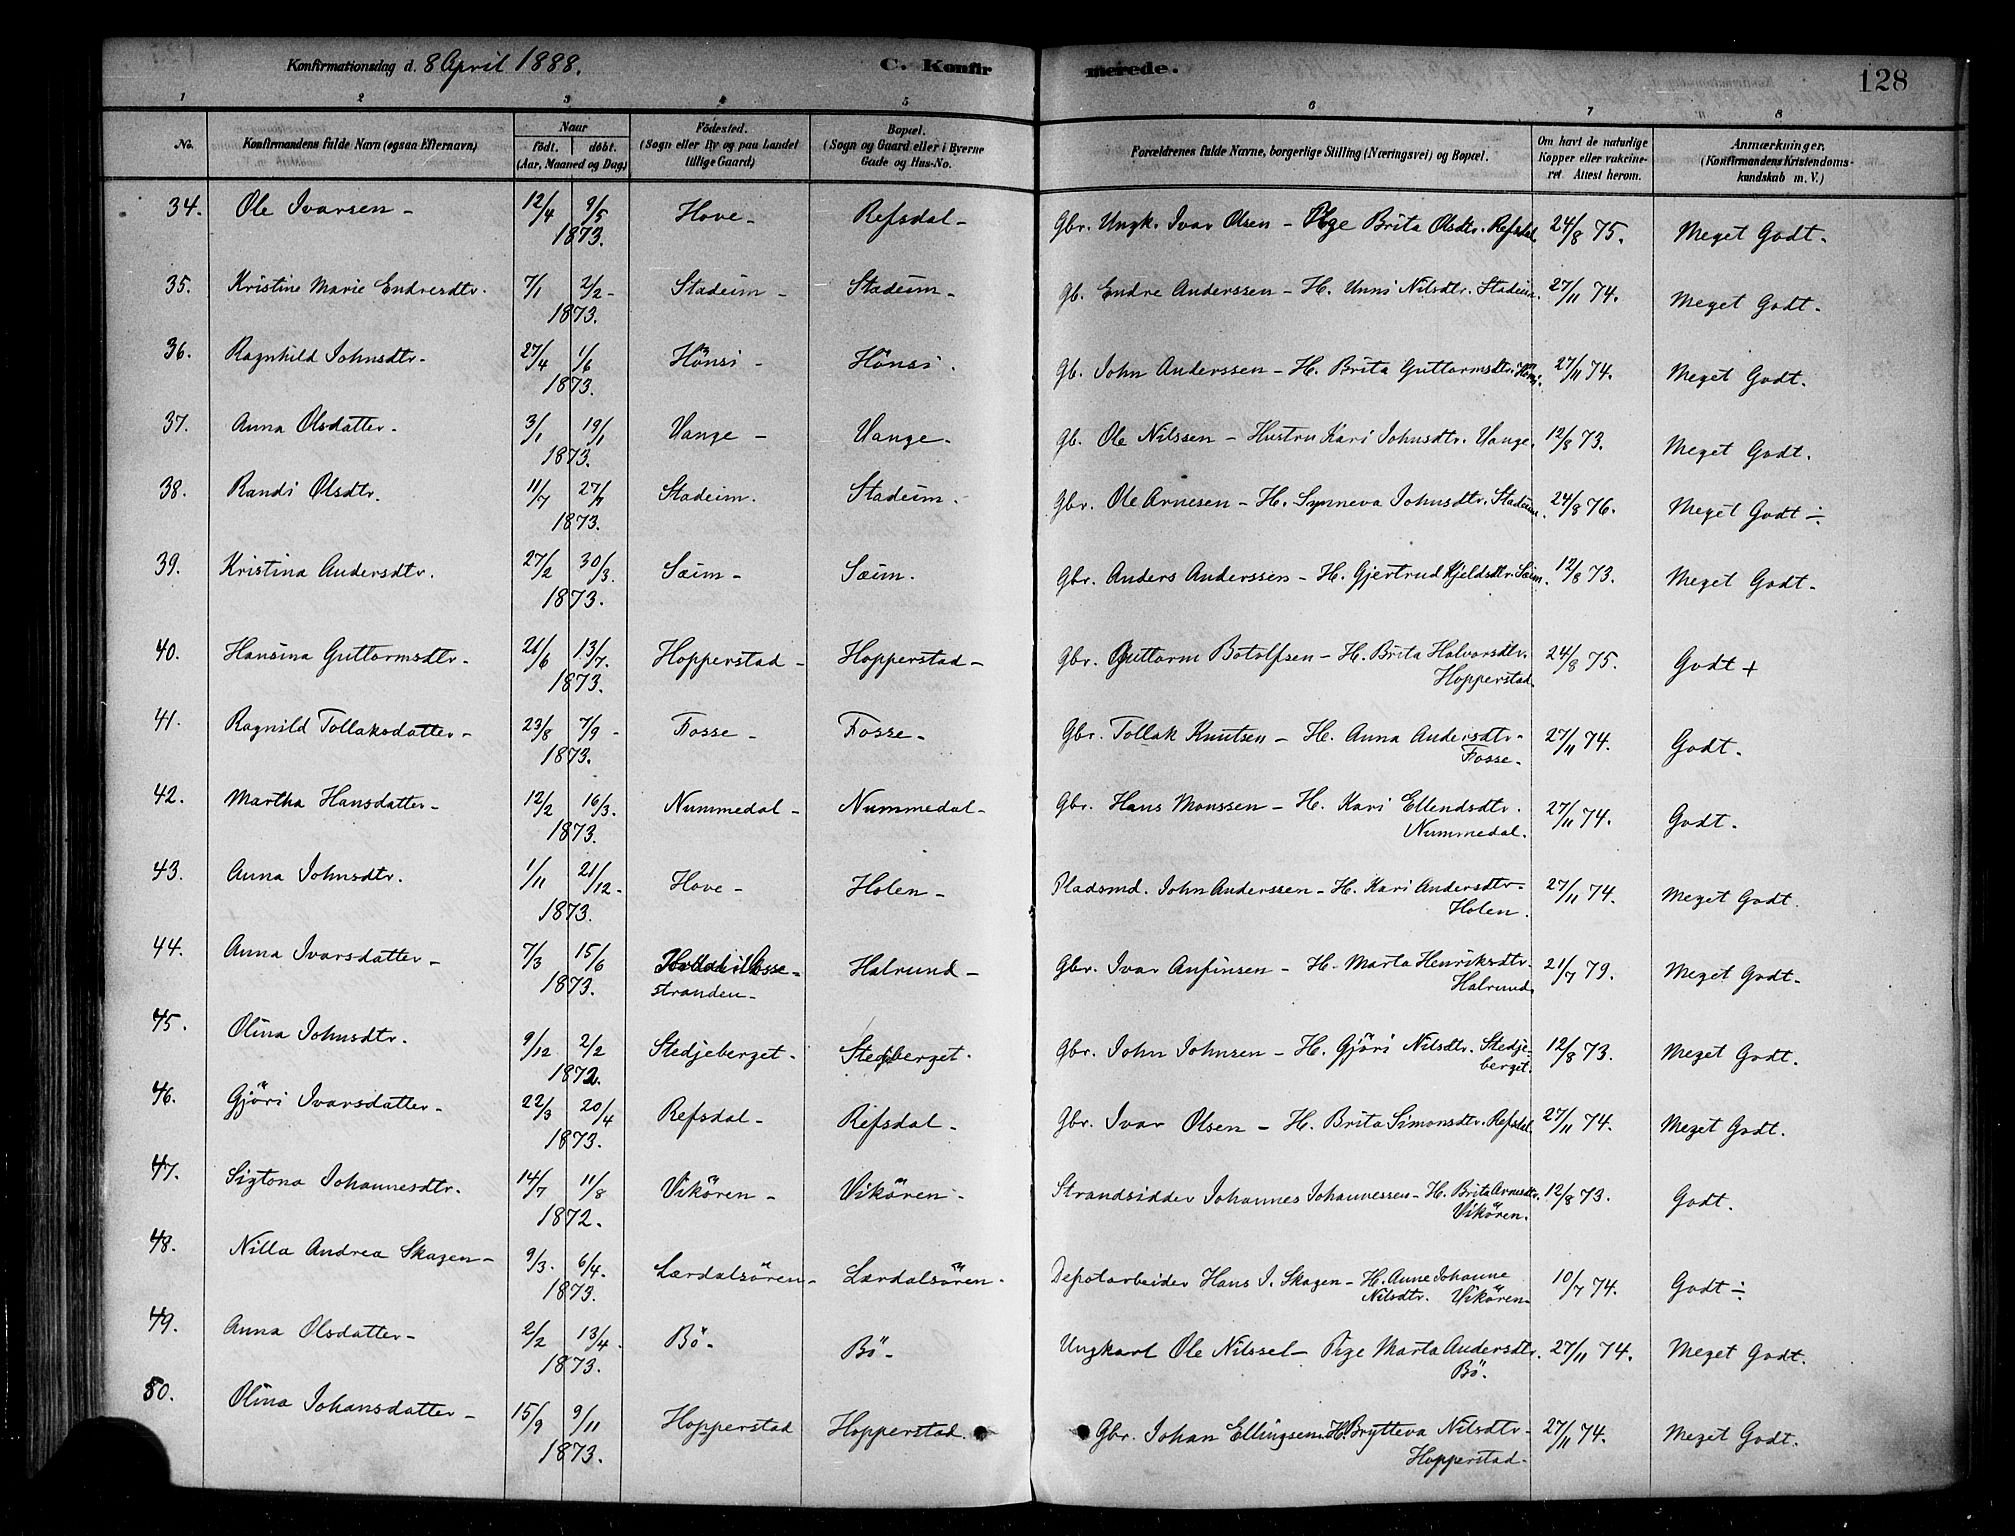 Konfirmationsdag d. 8 April 1888. C. Konfirmerede. 128
1 2 3 4 5 6 7 8
No. Konfirmandens fulde Navn (ogsaa Efternavn) Naar født. døbt. (Aar, Maaned og Dag) Fødested. (Sogn eller By og paa Landet tillige Gaard) Bopæl. (Sogn og Gaard eller i Byerne Gade og Hus-No. Forældrenes fulde Navne, borgerlige Stilling (Næringsvei) og Bopæl. Om havt de naturlige Kopper eller vakcineret. Attest herom. Anmærkninger, (Konfirmandens Kristendomskundskab m. V.)
34. Ole Ivarsen - 12/4 9/5 1873. Hove - Refsdal - Gbr. Ungk. Ivar Olsen - Pige Brita Olsdtr. Refsdal 24/8 75. Meget Godt.
35. Kristine Marie Endresdtr. 7/1 2/2 - 1873. Stadeim - Stadeim - Gb. Endre Anderssen - H. Unni Nilsdtr. Stadeim. 27/11 74. Meget Godt.
36. Ragnhild Johnsdtr. 27/4 1/6 1873. Hönsi - Hönsi. Gb. John Anderssen - H. Brita Guttormsdtr. Hönsi. 27/11 74. Meget Godt.
37. Anna Olsdatter. 3/1 19/1 1873. Vange - Vange. Gb. Ole Nilssen - Hustru Kari Johnsdtr. Vange. 12/8 73. Meget Godt.
38. Randi Olsdtr. 11/7 27/7 1873. Stadeim. Stadeim. Gbr. Ole Arnesen - H. Synneva Johnsdtr. Stadeim. 24/8 76. Meget Godt ÷
39. Kristina Andersdtr. 27/2 30/3. 1873. Sæim - Sæim. Gbr. Anders Anderssen - H. Gjertrud Kjeldsdtr. Sæim. 12/8 73. Meget Godt.
40. Hansina Guttormsdtr. 26/6 13/7. 1873. Hopperstad - Hopperstad - Gbr. Guttorm Botolfsen - H. Brita Halvorsdtr. Hopperstad. 24/8 75. Godt +
41. Ragnild Tollaksdatter - 23/8 7/9 - 1873. Fosse - Fosse - Gbr. Tollak Knutsen - H. Anna Andersdtr. Fosse. 27/11 74. Godt.
42. Martha Hansdatter - 12/2 16/3. 1873. Nummedal - Nummedal - Gbr. Hans Monssen - H. Kari Ellendsdtr. Nummedal. 27/11 74. Godt.
43. Anna Johnsdtr. 1/11 21/12 - 1873. Hove - Holen - Pladsmd. John Anderssen - H. Kari Andersdtr. Holen. 27/11 74. Meget Godt.
44. Anna Ivarsdatter - 7/3 15/6 1873. stranden - Halrund - Gbr. Ivar Anfinsen - H. Marta Henriksdtr. Halrund. 21/7 79. Meget Godt.
45. Olina Johnsdtr. 9/12 2/2 1872. Stedjeberget. Stedjeberget. Gbr. John Johnsen - H. Gjöri Nilsdtr. Stedjeberget. 12/8 73. Meget Godt.
46. Gjöri Ivarsdatter - 22/3 20/4 1873. Refsdal - Refsdal - Gbr. Ivar Olsen - H. Brita Simonsdtr. Refsdal. 27/11 74. Meget Godt.
47. Sigtona Johannesdtr. 14/7 11/8 1872. Vikören - Vikören - Strandsidder Johannes Johannessen - H. Brita Arnesdtr. Vikören. 12/8 73. Godt.
48. Nilla Andrea Skagen - 9/3. 6/4. 1873. Lærdalsören - Lærdalsören. Depotarbeider Hans J. Skagen - H. Anne Johanne Nilsdtr. Vikören - 10/7 74. Godt ÷
49. Anna Olsdatter - 2/2 13/4. 1873. Bö - Bö - Ungkarl Ole Nilssel - Pige Marta Andersdtr. Bö. 27/11 74. Meget Godt.
50. Olina Johansdatter - 15/9 9/11 1873. Hopperstad Hopperstad. Gbr. Johan Ellingsen. H. Brytteva Nilsdtr. Hopperstad. 27/11 74. Meget Godt.